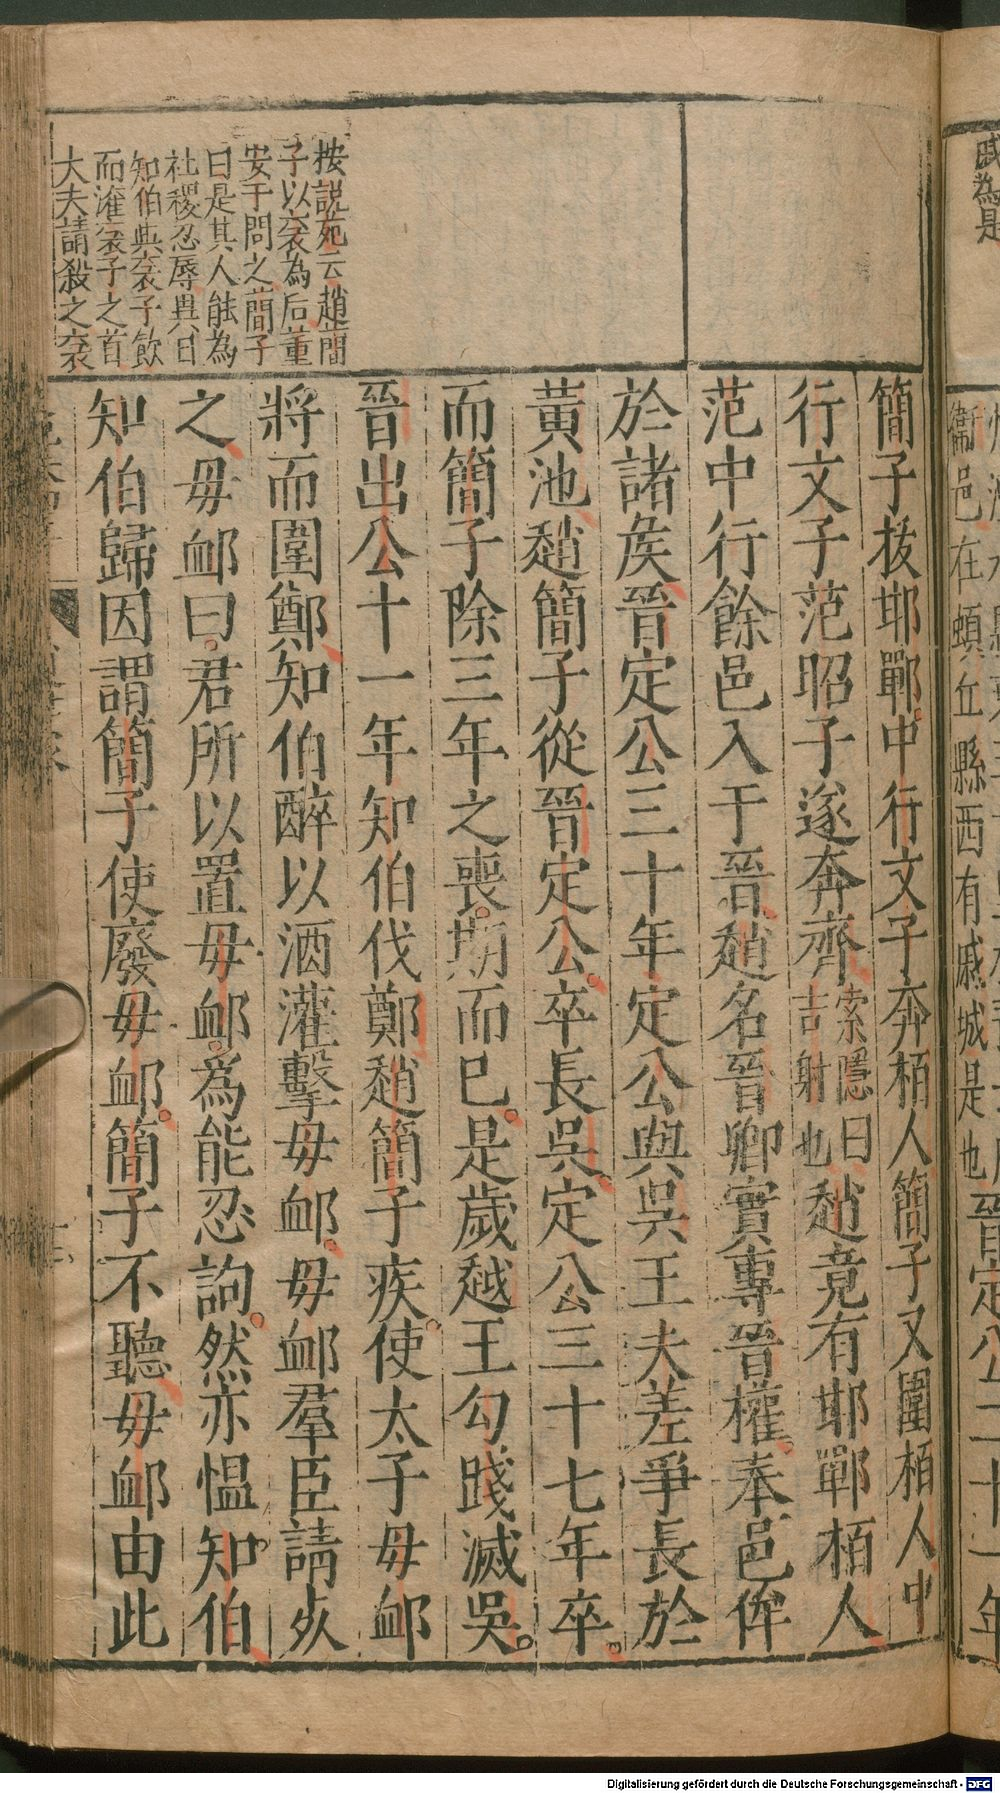 按說苑云趙簡
子以襄為后董
安于問之簡子
曰是其人能為
社稷忍辱異日
知伯與襄子飲
而灌襄子之首
大夫請殺之襄
簡子拔邯鄲中行文子奔栢人簡子又圍栢人中
行文子范昭子遂奔齊索隱曰吉射也趙竟有邯鄲栢人
范中行餘邑入于晉趙名晉卿實專晉權奉邑侔
於諸侯晉定公三十年定公與吳王夫差爭長於
黃池趙簡子從晉定公卒長吳定公三十七年卒
而簡子除三年之喪期而已是歲越王勾踐滅吳
晉出公十一年知伯伐鄭趙簡子疾使太子毋卹
將而圍鄭知伯醉以酒灌擊毋卹毋卹羣臣請㱥
之毋卹曰君所以置毋卹爲能忍訽然亦慍知伯
知伯歸因謂簡子使廢毋卹簡子不聽毋卹由此
戚為是
衞邑在頓丘縣西有戚城是也晉定公二十一年
Digitalisierung gefördert durch die Deutsche Forschungsgemeinschaft - DFG